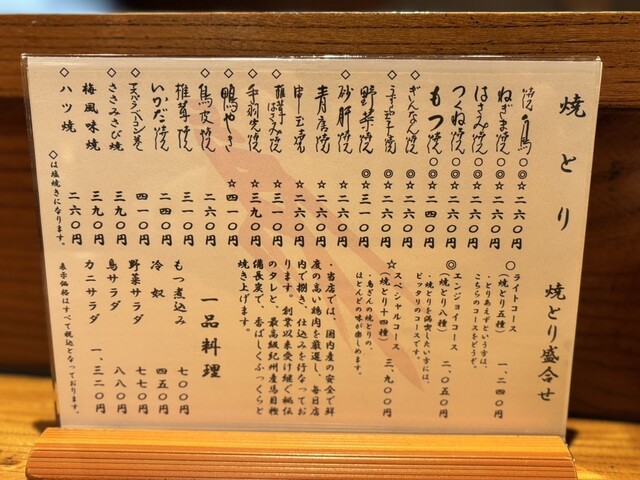 焼とり
○◎☆二六〇円
ねぎま焼○◎☆二六〇円
はさみ焼○◎☆二六〇円
つくね焼○◎☆二六〇円
もつ焼○◎☆二四〇円
◇ぎんなん焼◎☆二六〇円
◇うずら玉子焼◎☆二六〇円
野菜焼◎☆三一〇円
◇砂肝焼☆二六〇円
青唐焼☆二六〇円
☆二六〇円
◇椎茸はさみ焼☆三一〇円
◇手羽先焼☆三九〇円
◇鴨やき☆四一〇円
◇鳥皮焼 二六〇円
椎茸焼 三一〇円
いかだ焼 二四〇円
◇ベーコン巻 四一〇円
◇ささみさび焼 三九〇円
梅風味焼 三九〇円
◇ハツ焼 二六〇円
◇は塩焼きになります。
焼とり盛合せ
○ライトコース
(焼とり五種) 一、二四〇円
・とりあえずという方は、
こちらのコースをどうぞ。
◎エンジョイコース
(焼とり八種) 二、〇五〇円
・焼とりを満喫したい方には、
ピッタリのコースです。
☆スペシャルコース
(焼とり十四種) 三、九〇〇円
・鳥ぎんの焼とりの、
ほとんどの味が楽しめます。
・当店では、国内産の安全で鮮
度の高い鶏肉を厳選し、毎日店
内で捌き、仕込みを行なってお
ります。創業以来受け継ぐ秘伝
のタレと、最高級紀州産馬目樫
備長炭で、香ばしくふっくらと
焼き上げます。
一品料理
もつ煮込み 七〇〇円
冷奴 四五〇円
野菜サラダ 七七〇円
鳥サラダ 八八〇円
カニサラダ 一、三二〇円
表示価格はすべて税込となっております。